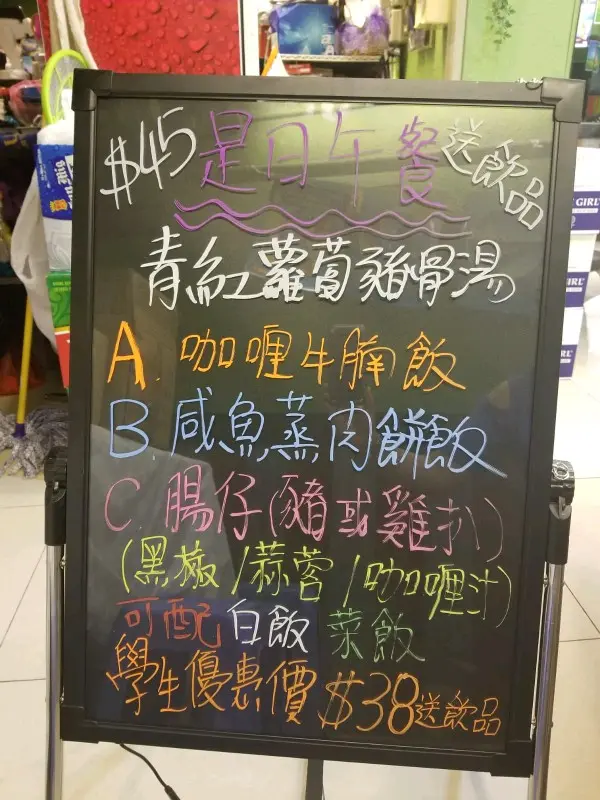 $45 是日午餐 送飲品
青紅蘿蔔豬骨湯
A. 咖喱牛腩飯
B. 咸魚蒸肉餅飯
C. 腸仔(豬或雞扒)
(黑椒/蒜蓉/咖喱汁)
可配 白飯 菜飯
學生優惠價 $38 送飲品
GIRL
GIRL